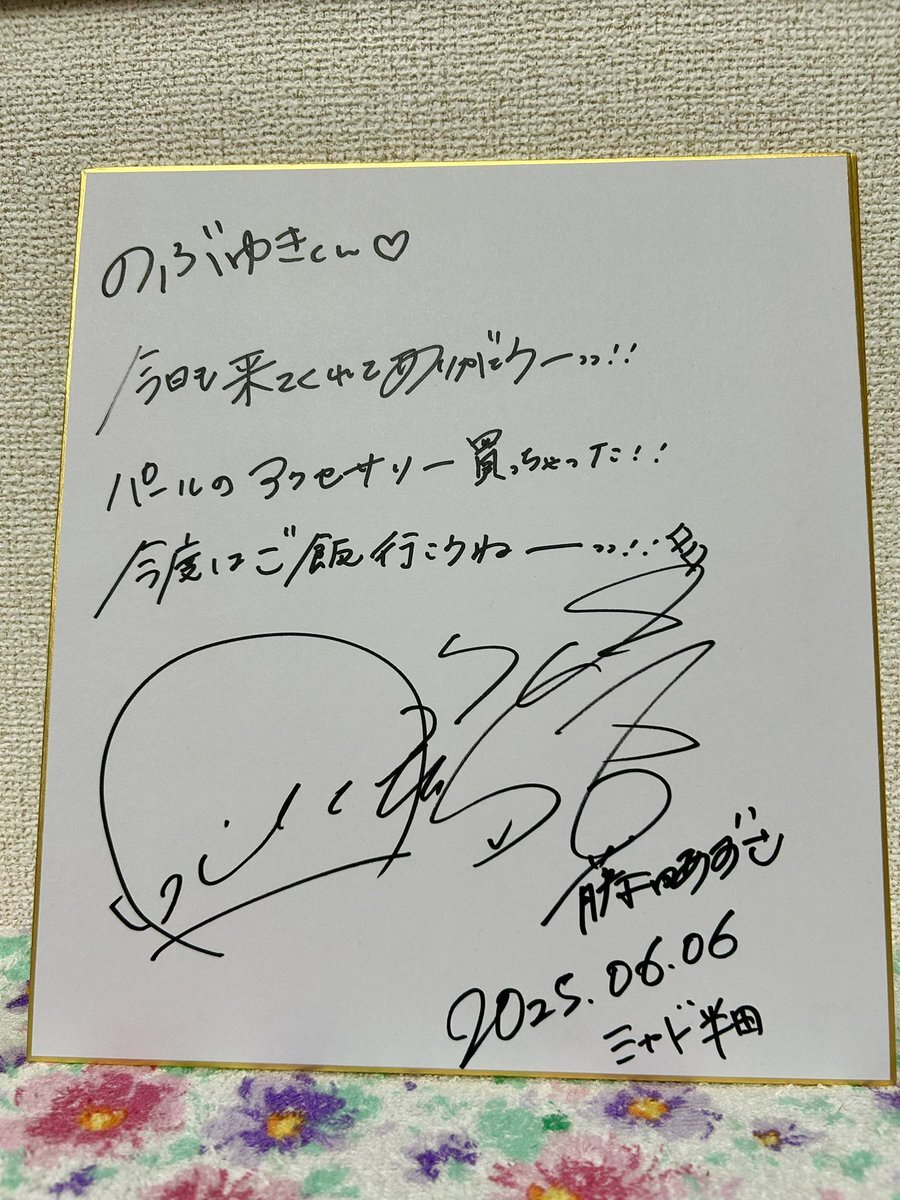 のぶゆきくん♡
今日も来てくれてありがとうーっっ!!
パールのアクセサリー買っちゃった!!
今度はご飯行こうねーっっ!!
藤田あずさ
2025.06.06
ミャド半田